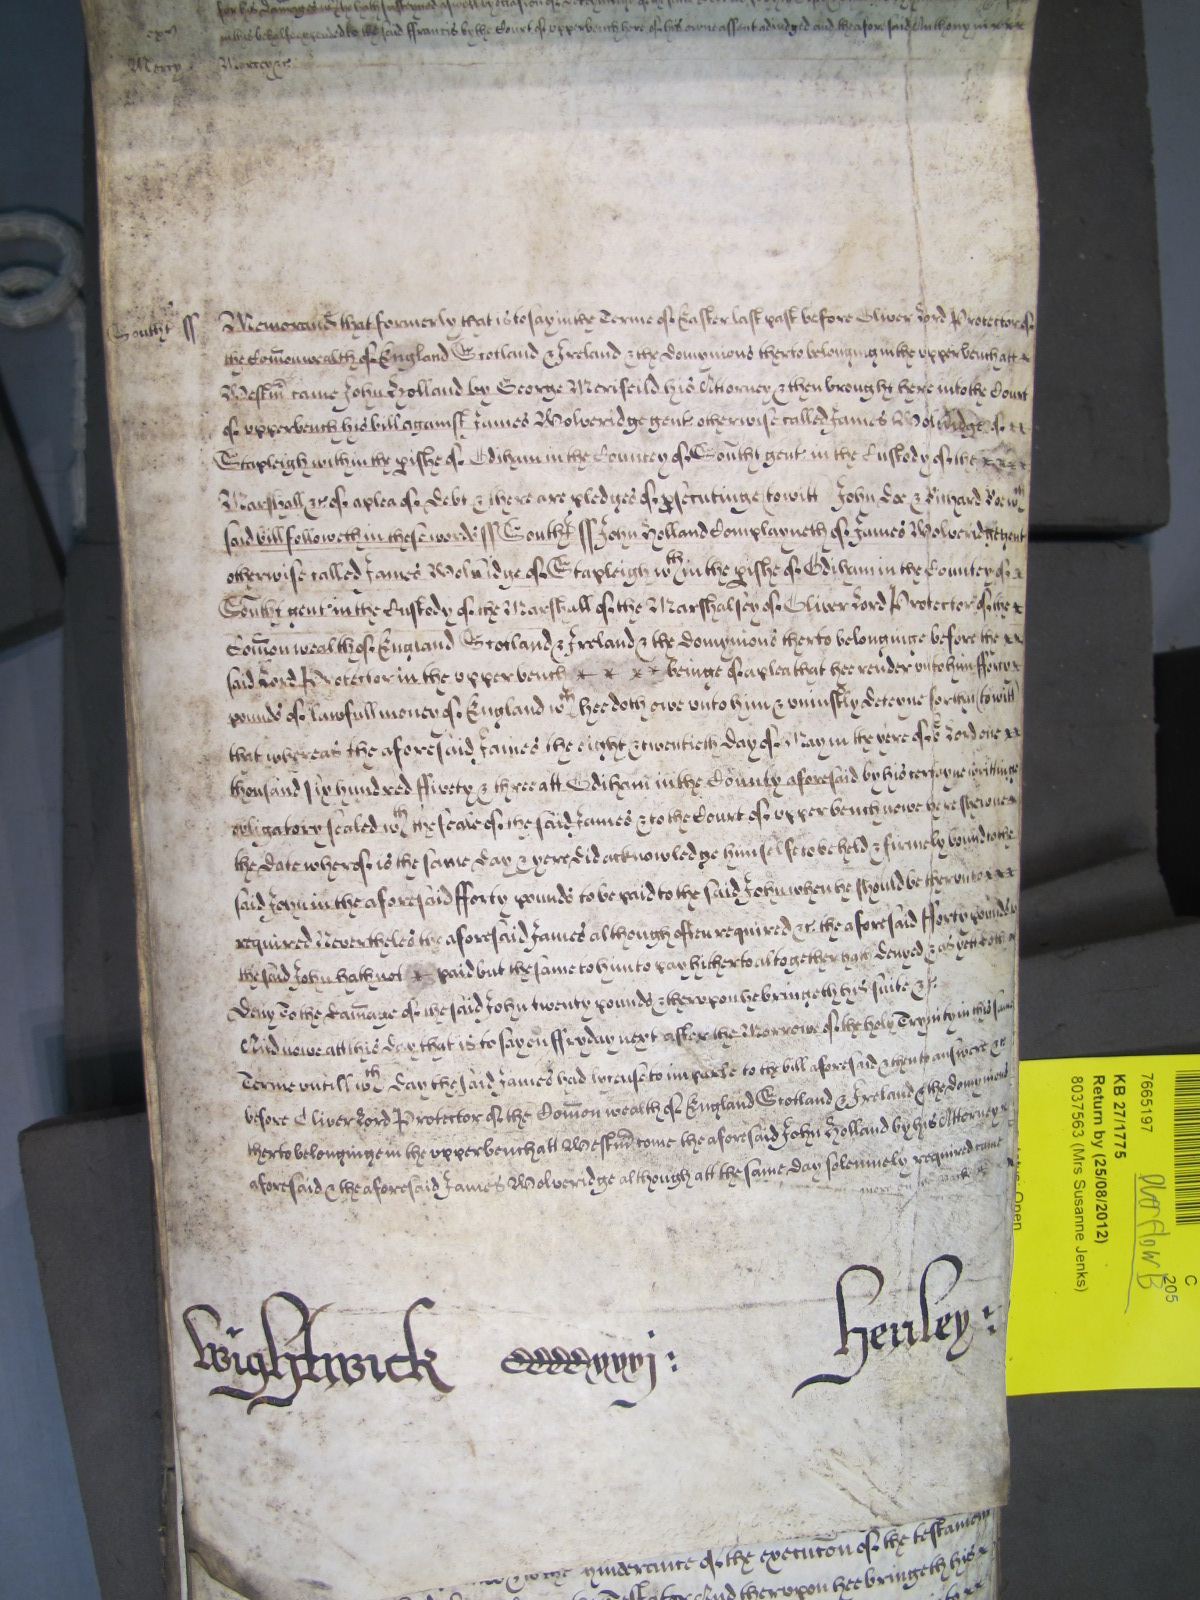 his behalfe expended to the said ffrancis by the Court of upperbench here of his owne assent adiudged and the aforesaid Anthony in
Mercy Mercy &c
Southt ss Memorand that formerly that is to say in the Terme of Easter last past before Oliver Lord Protector of
the Com̄onwealth of England Scotland & Ireland & the Domynions therto belonging in the upperbench att
Westm̄ came John Holland by George Meriseild his Attorney & then brought here into the Court
of upperbench his bill against James Wolveridge gent otherwise called James Wolvridge of
Stapleigh within the pishe of Odiham in the Countey of Southt gent in the Custody of the
Marshall &c of a plea of Debt & there are pledges of psecutinge towitt John Doe & Richard Roe wch
said bill followeth in these words ss Southt ss John Holland Complayneth of James Wolveridge gent
otherwise called James Wolvridge of Stapleigh wthin the pishe of Odiham in the Countey of
Southt gent in the Custody of the Marshall of the Marshalsey of Oliver Lord Protector of the
Com̄onwealth of England Scotland & Ireland & the Domynions therto belonginge before the
said Lord Protector in the upper bench beinge of a plea that hee render unto him fforty
pounds of lawfull money of England wch hee doth owe unto him & uniustly deteyne for that towitt
that whereas the aforesaid James the eight & twentieth day of May in the yere of or Lord one
thousand six hundred ffivety & three att Odiham in the County aforesaid by his certayne writtinge
obligatory sealed wth the seale of the said James & to the Court of upper bench nowe here shewne
the Date whereof is the same day & yere did acknowledge himselfe to be held & firmely bound to the
said John in the aforesaid fforty pounds to be paid to the said John when he should be therunto
required Neverthelesse the aforesaid James although often required &c the aforesaid fforty pounds
to the said John hath not paid but the same to him to pay hitherto altogether hath denyed & as yett doth
Deny To the Dam̄age of the said John twenty pounds & therupon he bringeth his suite &c
And nowe att this day that is to say on ffryday next after the Morrowe of the holy Trynity in this same
Terme untill wch day the said James had license to imparle to the bill aforesaid & then to answere &c
before Oliver Lord Protector of the Com̄on wealth of England Scotland & Ireland & the domynions
therto belonginge in the upperbench att Westm̄ come the aforesaid John Holland by his Attorney
aforesaid & the aforesaid James Wolveridge although att the same day solemnely required came
Wightwick xxxj: Henley:
hinderance of the execucōn of the testament
And therupon hee bringeth his
7665197
KB 27/1775
Return by (25/08/2012)
8037563 (Mrs Susanne Jenks)
C
205
Open